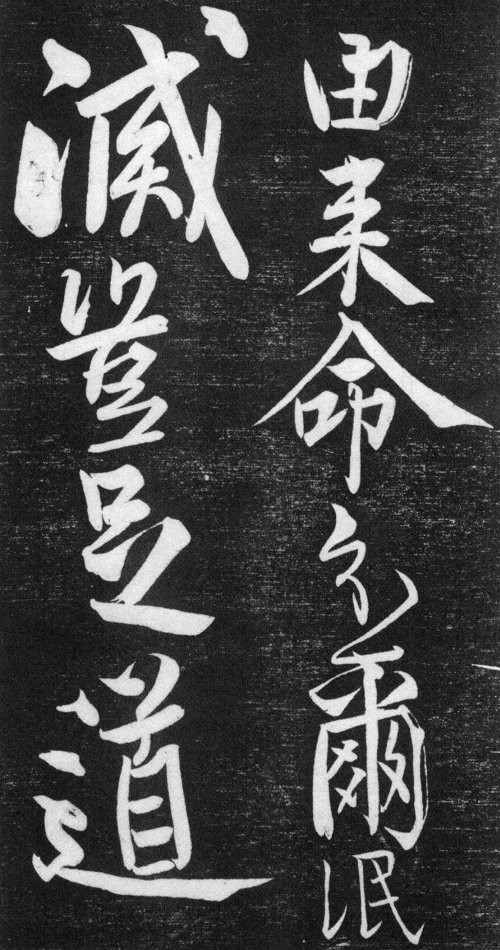 由来命分爾泯
滅豈足道